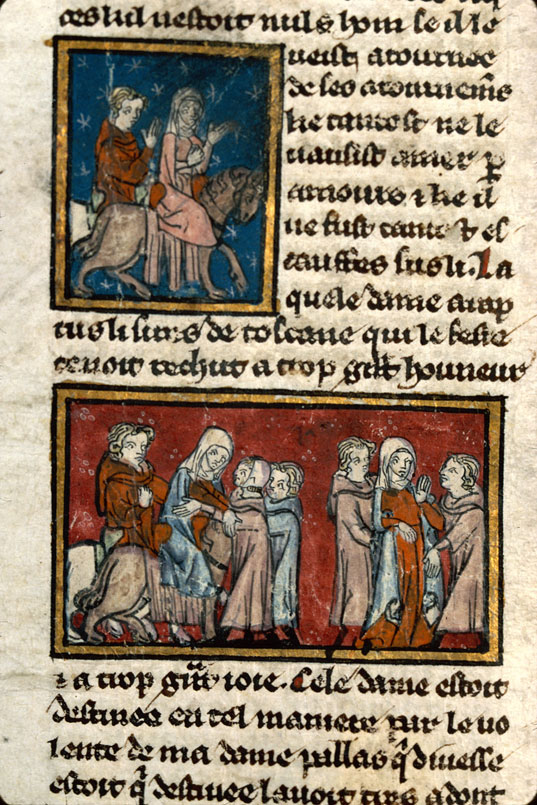 ues lui uestoit nuls hom se il le
ueist atournee
de ses atournemēs
ke tantost ne le
uausist amer ꝑ
amours ⁊ ke il
ne fust tante ⁊ es
cauffes sus li. La
quele dame arap
tus li sires de toscane qui le feste
tenoit rechut a trop grāt honneur
⁊ a trop grāt ioie. Cele dame estoit
destinee en tel maniere par le uo
lente de ma dame pallas q̄ diuesse
estoit q̄ destinee lauoit tres adont